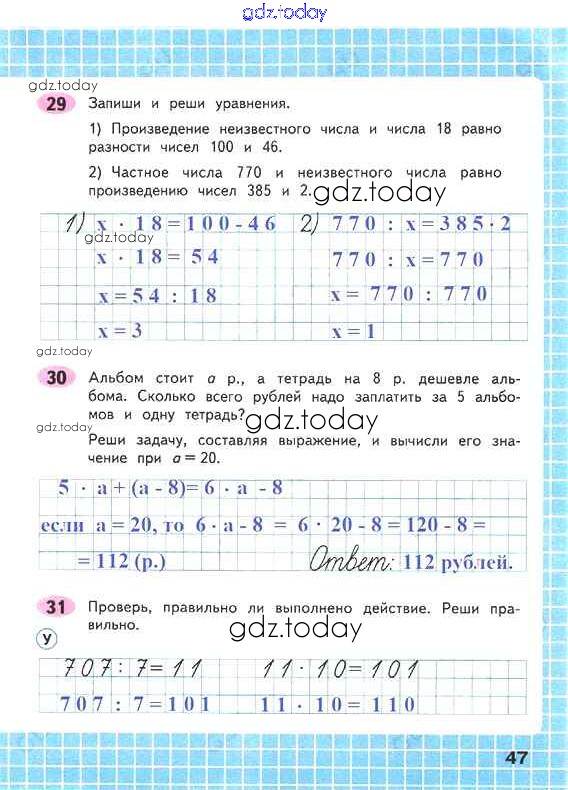 gdz.today
gdz.today
29 Запиши и реши уравнения.
1) Произведение неизвестного числа и числа 18 равно
разности чисел 100 и 46.
2) Частное числа 770 и неизвестного числа равно
произведению чисел 385 и 2.
gdz.today
1) x · 18 = 100 - 46 2) 770 : x = 385 · 2
gdz.today
x · 18 = 54 770 : x = 770
x = 54 : 18 x = 770 : 770
x = 3 x = 1
gdz.today
30 Альбом стоит a р., а тетрадь на 8 р. дешевле аль-
бома. Сколько всего рублей надо заплатить за 5 альбо-
мов и одну тетрадь?
gdz.today
gdz.today
Реши задачу, составляя выражение, и вычисли его зна-
чение при a = 20.
5 · a + (a - 8) = 6 · a - 8
если a = 20, то 6 · a - 8 = 6 · 20 - 8 = 120 - 8 =
= 112 (р.) Ответ: 112 рублей.
31 Проверь, правильно ли выполнено действие. Реши пра-
вильно.
gdz.today
У
707 : 7 = 11 11 · 10 = 101
707 : 7 = 101 11 · 10 = 110
47
gdz.today